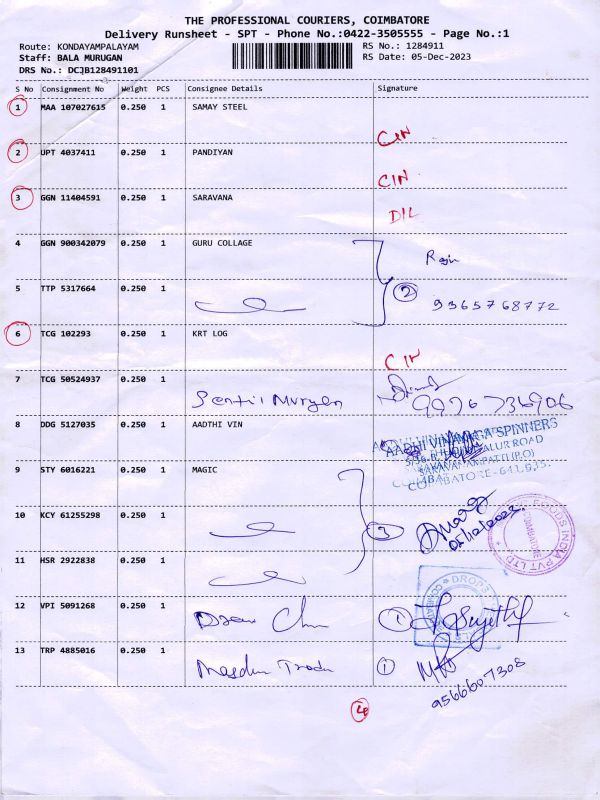 THE PROFESSIONAL COURIERS, COIMBATORE
Delivery Runsheet - SPT - Phone No.:0422-3505555 - Page No.:1
Route: KONDAYAMPALAYAM
RS No.: 1284911
Staff: BALA MURUGAN
RS Date: 05-Dec-2023
DRS No.: DCJB128491101
S No Consignment No Weight PCS Consignee Details Signature
1 MAA 107027615 0.250 1 SAMAY STEEL
CIN
2 UPT 4037411 0.250 1 PANDIYAN
CIN
3 GGN 11404591 0.250 1 SARAVANA
DIL
4 GGN 900342079 0.250 1 GURU COLLAGE
5 TTP 5317664 0.250 1
2
9365768772
6 TCG 102293 0.250 1 KRT LOG
CIN
7 TCG 50524937 0.250 1
Sentil Murugan
9976736906
8 DDG 5127035 0.250 1 AADTHI VIN
AADHI VINAYAGA SPINNERS
SARAVANAMPATTI (P.O)
COIMBATORE-641 035.
9 STY 6016221 0.250 1 MAGIC
10 KCY 61255298 0.250 1
3
05/12/2023
FOODS INDIA PVT LTD
COIMBATORE
11 HSR 2922838 0.250 1
DROPS
12 VPI 5091268 0.250 1
1
13 TRP 4885016 0.250 1
1
9566607308
4